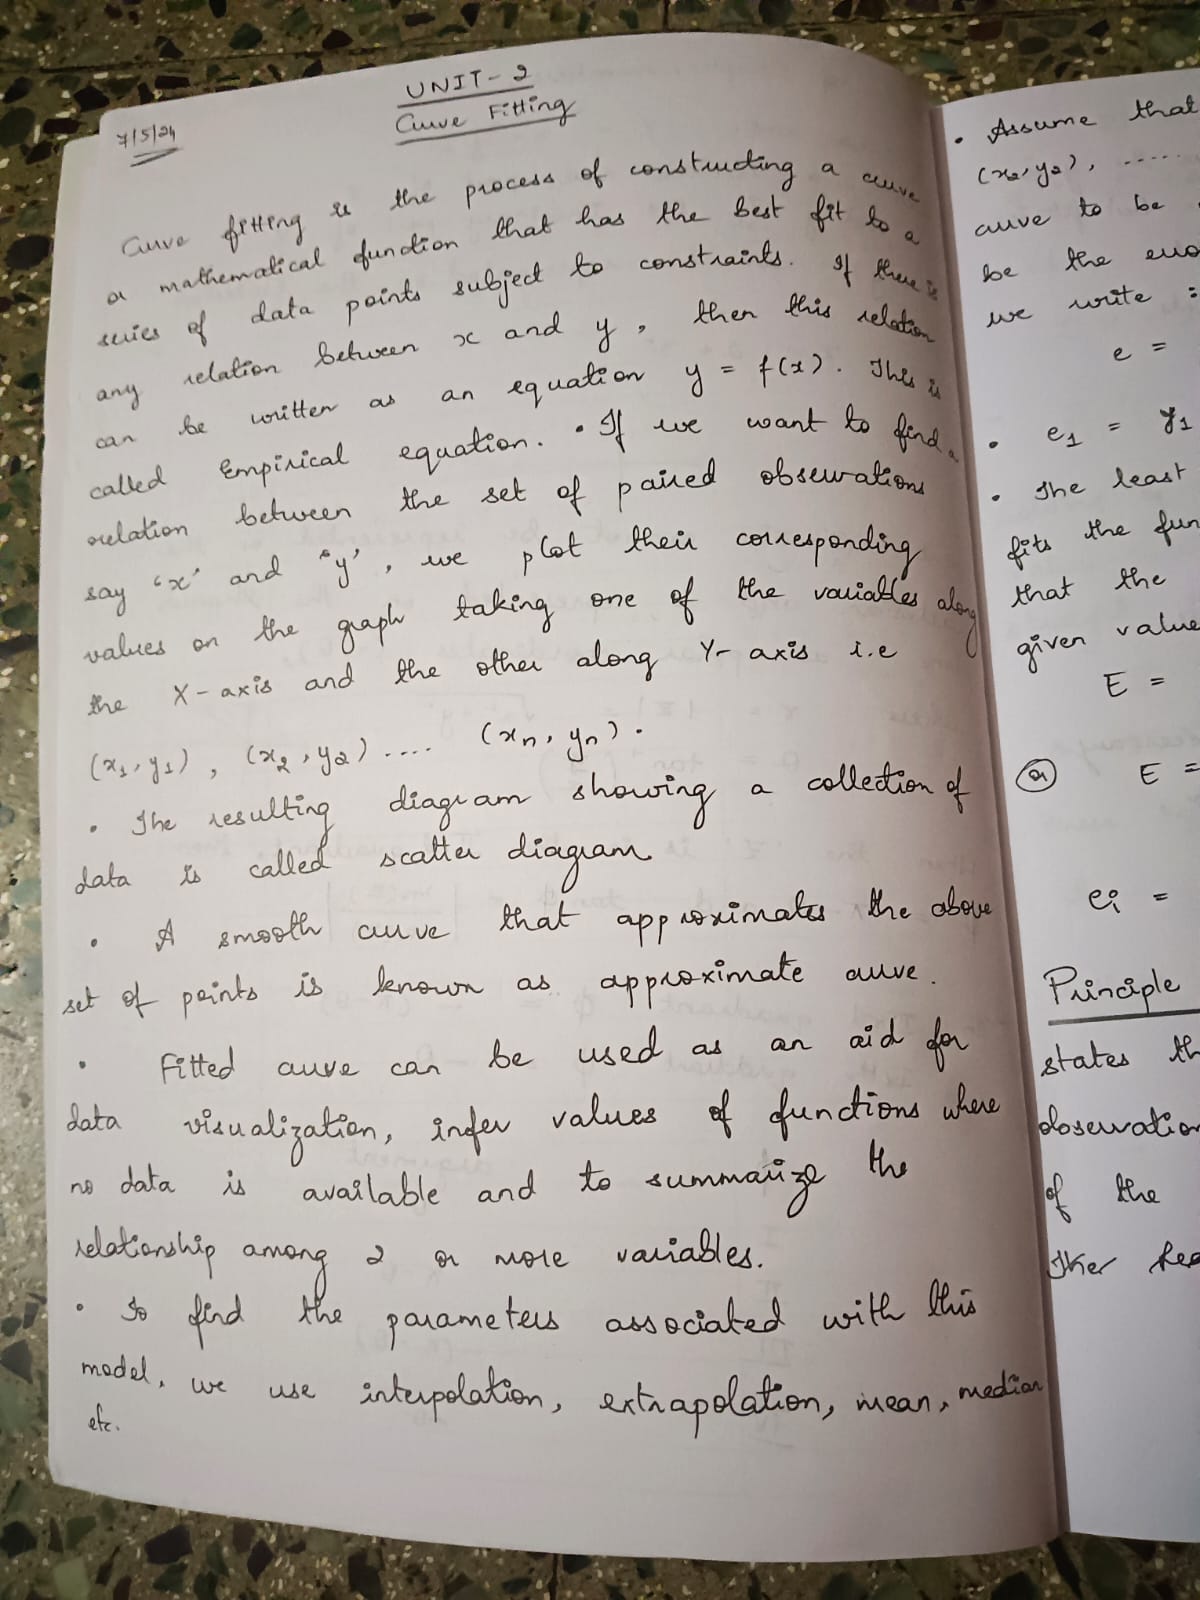 UNIT-2
Curve Fitting
7/5/24
Curve fitting is the process of constructing a curve
or mathematical function that has the best fit to a
series of data points subject to constraints. If there is
any relation between x and y, then this relation
can be written as an equation y = f(x). This is
called Empirical equation. • If we want to find a
relation between the set of paired observations
say 'x' and 'y', we plot their corresponding
values on the graph taking one of the variables along
the X-axis and the other along Y-axis i.e
(x₁, y₁), (x₂, y₂) .... (xn, yn).
• The resulting diagram showing a collection of
data is called scatter diagram.
• A smooth curve that approximates the above
set of points is known as approximate curve.
• Fitted curve can be used as an aid for
data visualization, infer values of functions where
no data is available and to summarize the
relationship among 2 or more variables.
• To find the parameters associated with this
model, we use interpolation, extrapolation, mean, median
etc.
• Assume that
(x₂, y₂), .....
curve to be
be the
we write :
e =
• e₁ = y₁
• The least
fits the fun
that the
given value
E =
(a) E =
ei =
Principle
states th
observation
of the